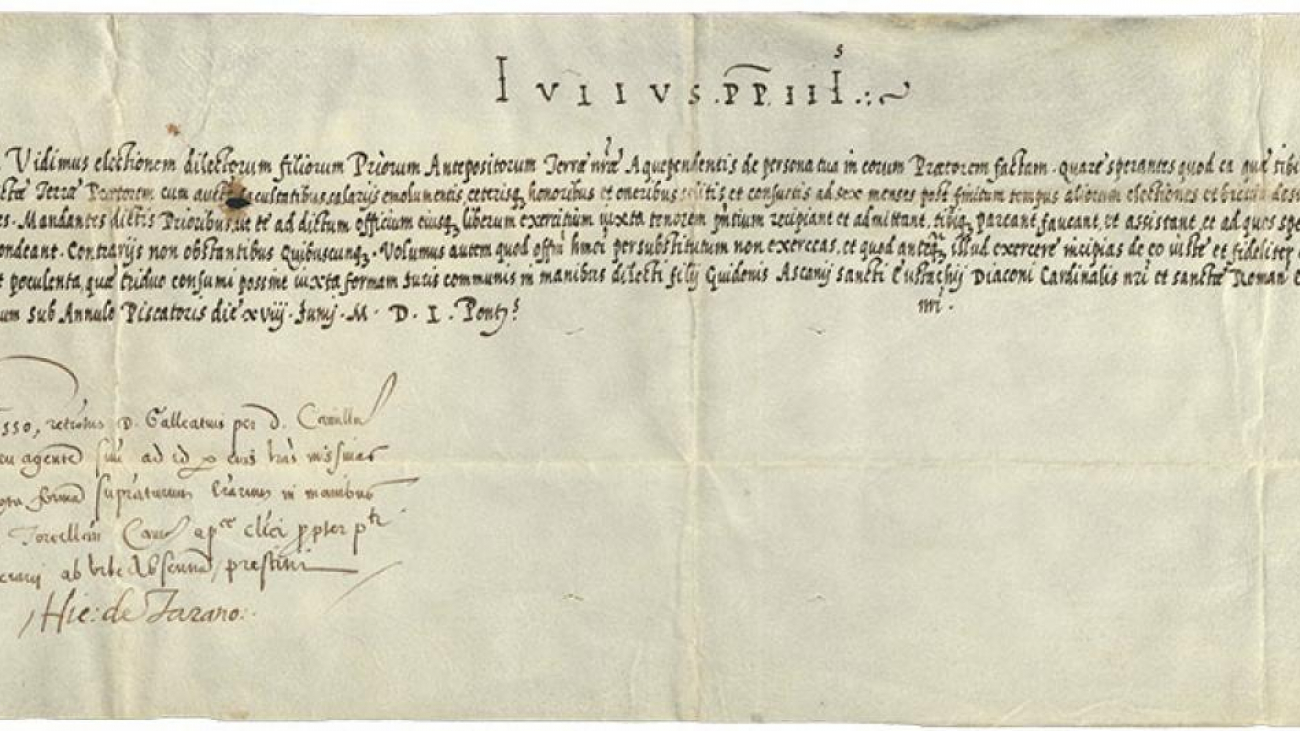 IVLIVS . PP. III s .:~
Vidimus electionem dilectorum filiorum Priorum Antepositorum Terræ nr̃æ Aquependentis de persona tua in eorum Prætorem factam. quare sperantes quod ea quæ tibi
Terræ Prætorem cum facultatibus, salarijs emolumentis, ceterisq; honoribus et oneribus solitis, et consuetis ad sex menses post finitum tempus aliorum electiones et brevia
es. Mandantes dictis Prioribus, ut te ad dictum officium eiusq; liberum exercitium iuxta tenorem pñtium recipiant et admittant, tibiq; pareant, faueant, et assistant, et ad quos spe
ondeant. Contrarijs non obstantibus Quibuscunq;. Volumus autem quod offm̃ hmõi per substitutum non exerceas, et quod anteq̃ illud exercere incipias de eo iuste et fideliter
poculenta, quæ triduo consumi possint iuxta formam Juris communis in manibus dilecti filij Guidonis Ascanij sancti Eustachij Diaconi Cardinalis nr̃i et sanctæ Roman
um sub Annulo Piscatoris die xviij. Junij. M. D. L. Pont̃
550, D. Galleatius per D. Camillu
agente ad id eius missiuas
forma in manibus
Torellini ap.ce clĩci
ab Vrbe prestiti
Hie: de Tarano: